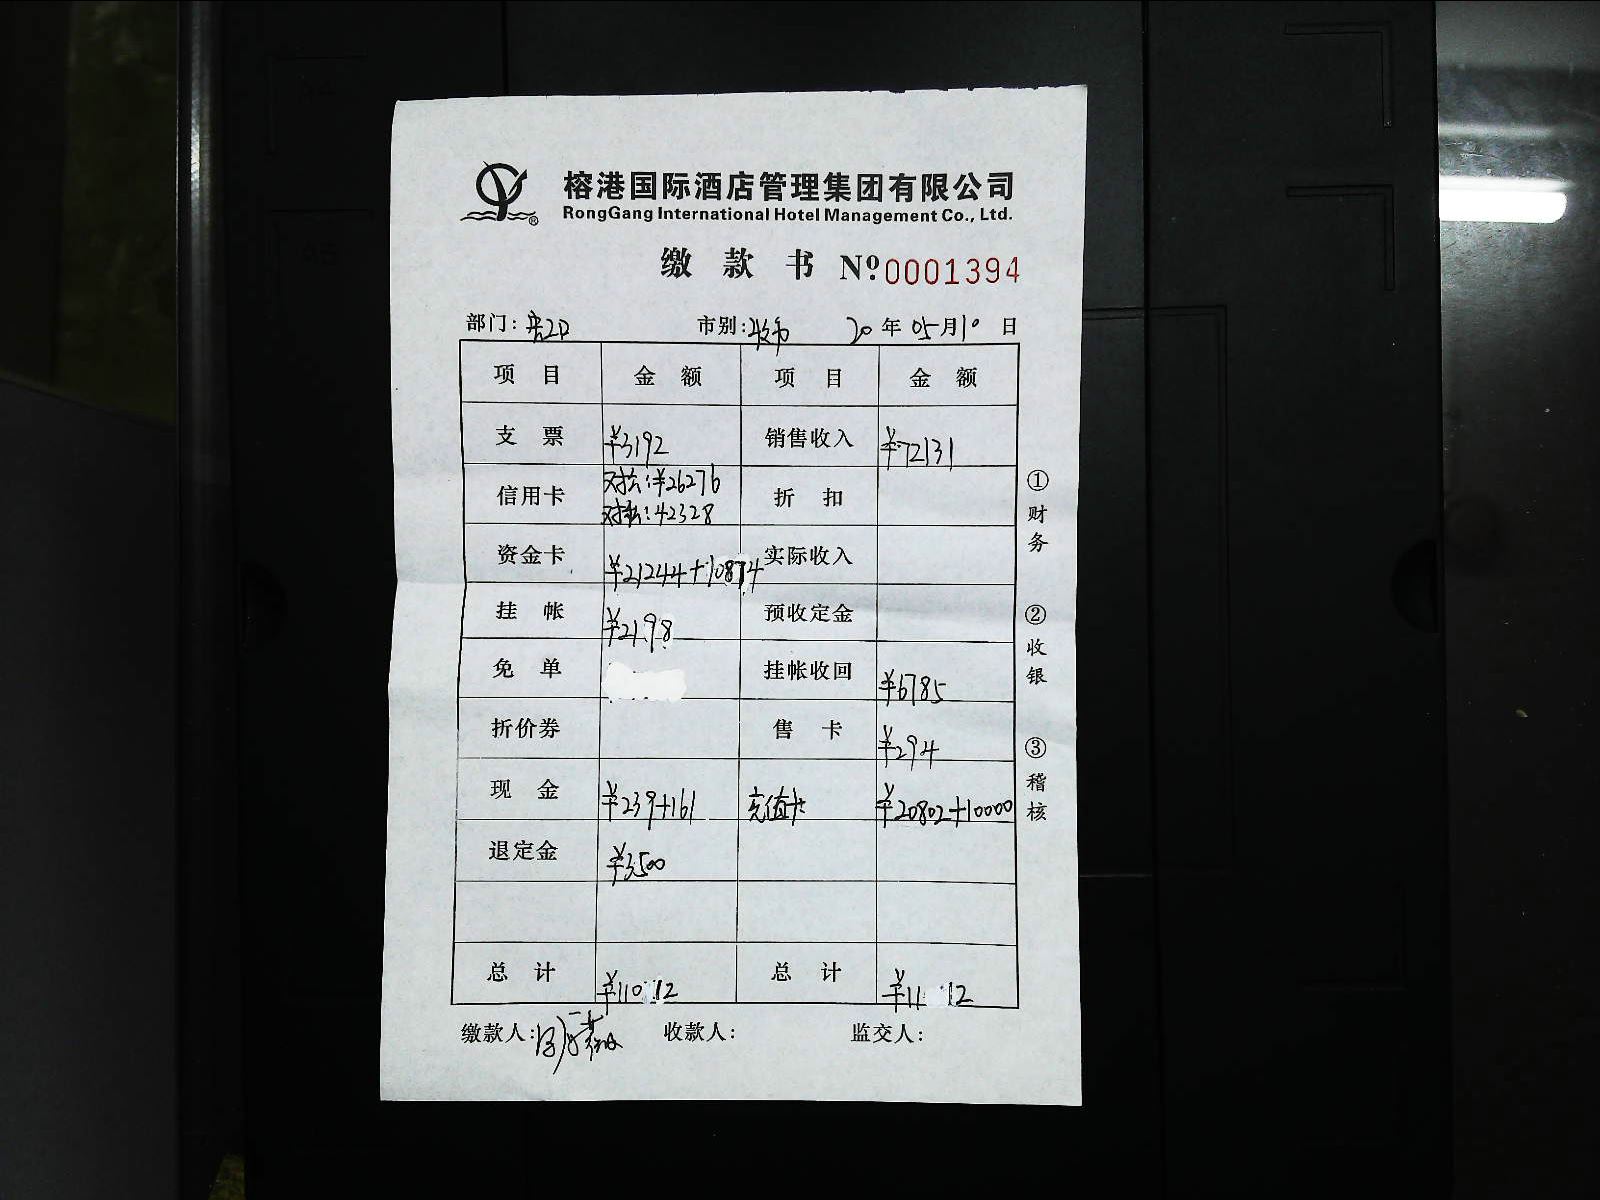 榕港国际酒店管理集团有限公司
RongGang International Hotel Management Co., Ltd.
缴款书 Nº 0001394
部门: 市别: 20年05月10日
项目 金额 项目 金额
支票 ¥3192 销售收入 ¥72131
信用卡 对公:¥26276 折扣
42328
资金卡 ¥21244+10874 实际收入
挂帐 ¥2198 预收定金
免单 挂帐收回 ¥6785
折价券 售卡 ¥294
现金 ¥239+161 充值卡 ¥20802+10000
退定金 ¥3500
总计 总计
缴款人: 收款人: 监交人:
①财务
②收银
③稽核